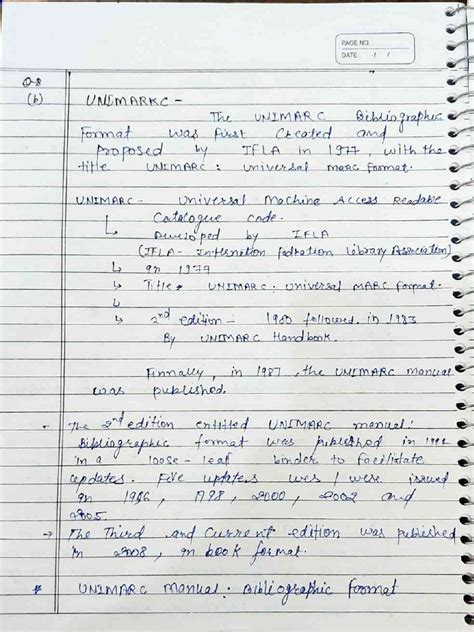 PAGE NO.
DATE / /
Q-8
(b) UNIMARKC -
The UNIMARC Bibliographic
Format was First Created and
Proposed by IFLA in 1977, with the
title UNIMARC: Universal MARC format.
UNIMARC - Universal Machine Access Readable
Catalogue Code.
Developed by IFLA
(IFLA - Internation Fedration Library Association)
↳ In 1977
↳ Title: UNIMARC: Universal MARC format.
↳
↳ 2nd edition - 1980 followed in 1983
By UNIMARC Handbook.
Finnally, in 1987, the UNIMARC manual
was published.
The 2nd edition entitled UNIMARC manual:
Bibliographic format was published in
in a loose-leaf binder to facilitate
updates. Five updates was / were issued
in 1996, 1998, 2000, 2002 and
2005.
→ The Third and Current edition was published
in 2008, in book format.
# UNIMARC Manual: Bibliographic format